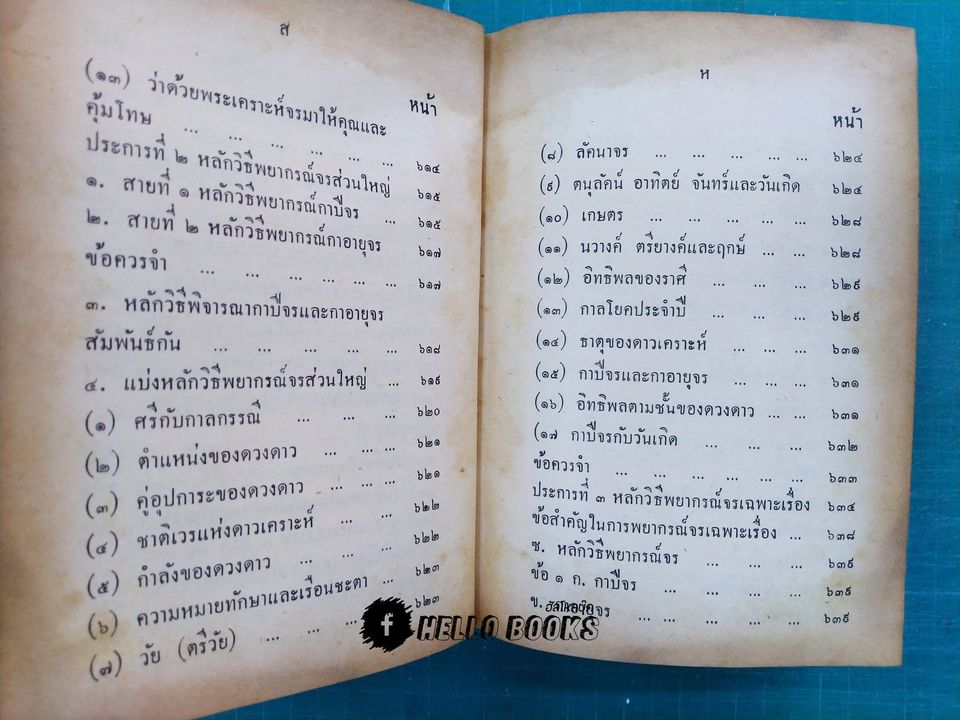 ส
หน้า
(๑๓) ว่าด้วยพระเคราะห์จรมาให้คุณและ
คุ้มโทษ ... ... ... ... ... ... ๖๑๔
ประการที่ ๒ หลักวิธีพยากรณ์จรส่วนใหญ่ ๖๑๕
๑. สายที่ ๑ หลักวิธีพยากรณ์กาปีจร ... ๖๑๕
๒. สายที่ ๒ หลักวิธีพยากรณ์กาอายุจร ๖๑๗
ข้อควรจำ ... ... ... ... ... ... ๖๑๗
๓. หลักวิธีพิจารณากาปีจรและกาอายุจร
สัมพันธ์กัน ... ... ... ... ... ๖๑๘
๔. แบ่งหลักวิธีพยากรณ์จรส่วนใหญ่ ... ๖๑๙
(๑) ศรีกับกาลกรรณี ... ... ... ๖๒๐
(๒) ตำแหน่งของดวงดาว ... ... ... ๖๒๑
(๓) คู่อุปการะของดวงดาว ... ... ... ๖๒๑
(๔) ชาติเวรแห่งดาวเคราะห์ ... ... ๖๒๒
(๕) กำลังของดวงดาว ... ... ๖๒๒
(๖) ความหมายทักษาและเรือนชะตา ... ๖๒๓
(๗) วัย (ตรีวัย) ... ... ... ๖๒๓
ห
หน้า
(๘) ลัคนาจร ... ... ... ... ... ๖๒๔
(๙) ตนุลัคน์ อาทิตย์ จันทร์และวันเกิด ๖๒๔
(๑๐) เกษตร ... ... ... ... ... ๖๒๘
(๑๑) นวางค์ ตรียางค์และฤกษ์ ... ... ๖๒๘
(๑๒) อิทธิพลของราศี ... ... ... ๖๒๙
(๑๓) กาลโยคประจำปี ... ... ... ๖๒๙
(๑๔) ธาตุของดาวเคราะห์ ... ... ... ๖๓๑
(๑๕) กาปีจรและกาอายุจร ... ... ... ๖๓๑
(๑๖) อิทธิพลตามชั้นของดวงดาว ... ... ๖๓๑
(๑๗ กาปีจรกับวันเกิด ... ... ... ๖๓๒
ข้อควรจำ ... ... ... ... ... ๖๓๓
ประการที่ ๓ หลักวิธีพยากรณ์จรเฉพาะเรื่อง ๖๓๔
ข้อสำคัญในการพยากรณ์จรเฉพาะเรื่อง ... ๖๓๘
ซ. หลักวิธีพยากรณ์จร ... ... ... ๖๓๙
ข้อ ๑ ก. กาปีจร ... ... ... ๖๓๙
ข. ... ... ... ... ๖๓๙
HELLO BOOKS